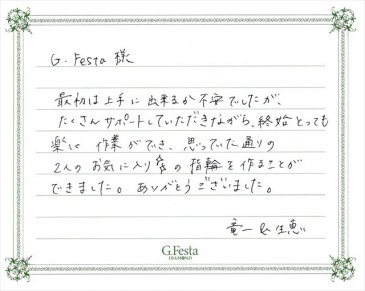 G.Festa 様
最初は上手に出来るか不安でしたが、
たくさんサポートしていただきながら、終始とっても
楽しく作業ができ、思っていた通りの
2人のお気に入りの指輪を作ることが
できました。ありがとうございました。
竜一 & 生恵
G.Festa
DIAMOND